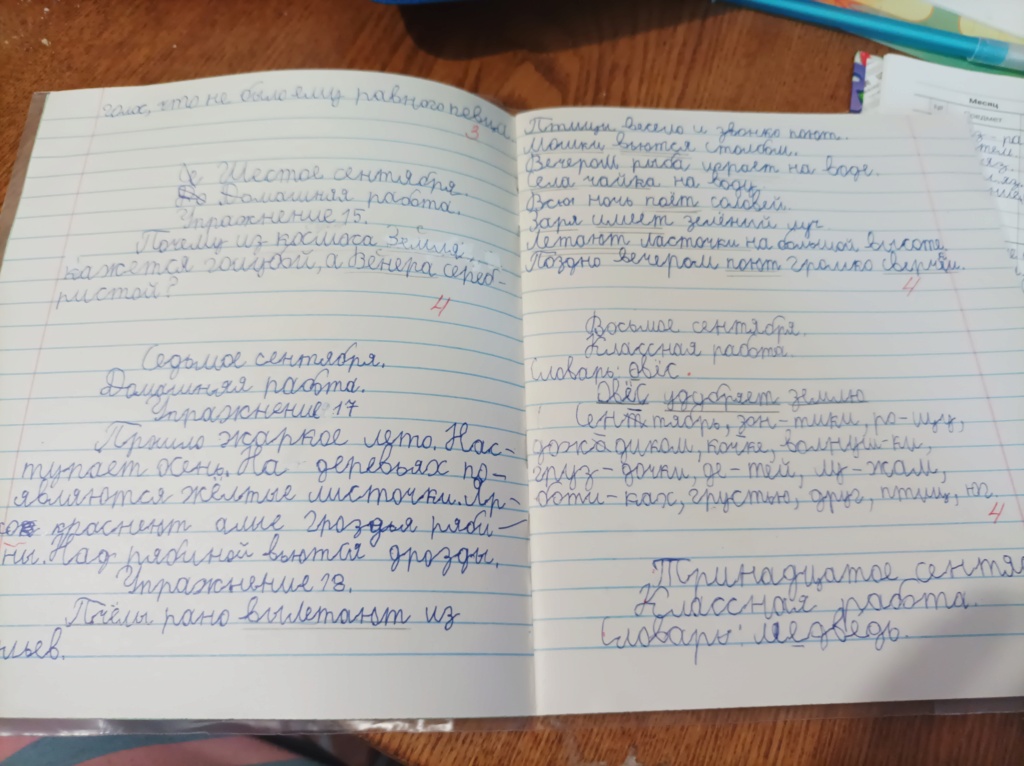 голос, что не было ему равного певца
3
Шестое сентября.
Домашняя работа.
Упражнение 15.
Почему из космоса Земля
кажется голубой, а Венера сереб-
ристой?
4
Седьмое сентября.
Домашняя работа.
Упражнение 17
Прошло жаркое лето. Нас-
тупает осень. На деревьях по-
являются жёлтые листочки. Яр-
ко краснеют алые гроздья ряби-
ны. Над рябиной вьются дрозды.
Упражнение 18.
Пчёлы рано вылетают из
льев.
Птицы весело и звонко поют.
Мошки вьются столбом.
Вечером рыба играет на воде.
Села чайка на воду
Всю ночь поёт соловей.
Заря имеет зелёный луч.
Летают ласточки на большой высоте
Поздно вечером поют громко сверчки.
4
Восьмое сентября.
Классная работа.
Словарь: овёс.
Овёс удобряет землю
Сентябрь, зон-тики, ро-щу,
дождиком, кочке, волнуш-ки,
груз-дочки, де-тей, лу-жам,
боти-ках, грустью, друг, птиц, юг.
4
Тринадцатое сентя
Классная работа.
Словарь: медведь.
Месяц